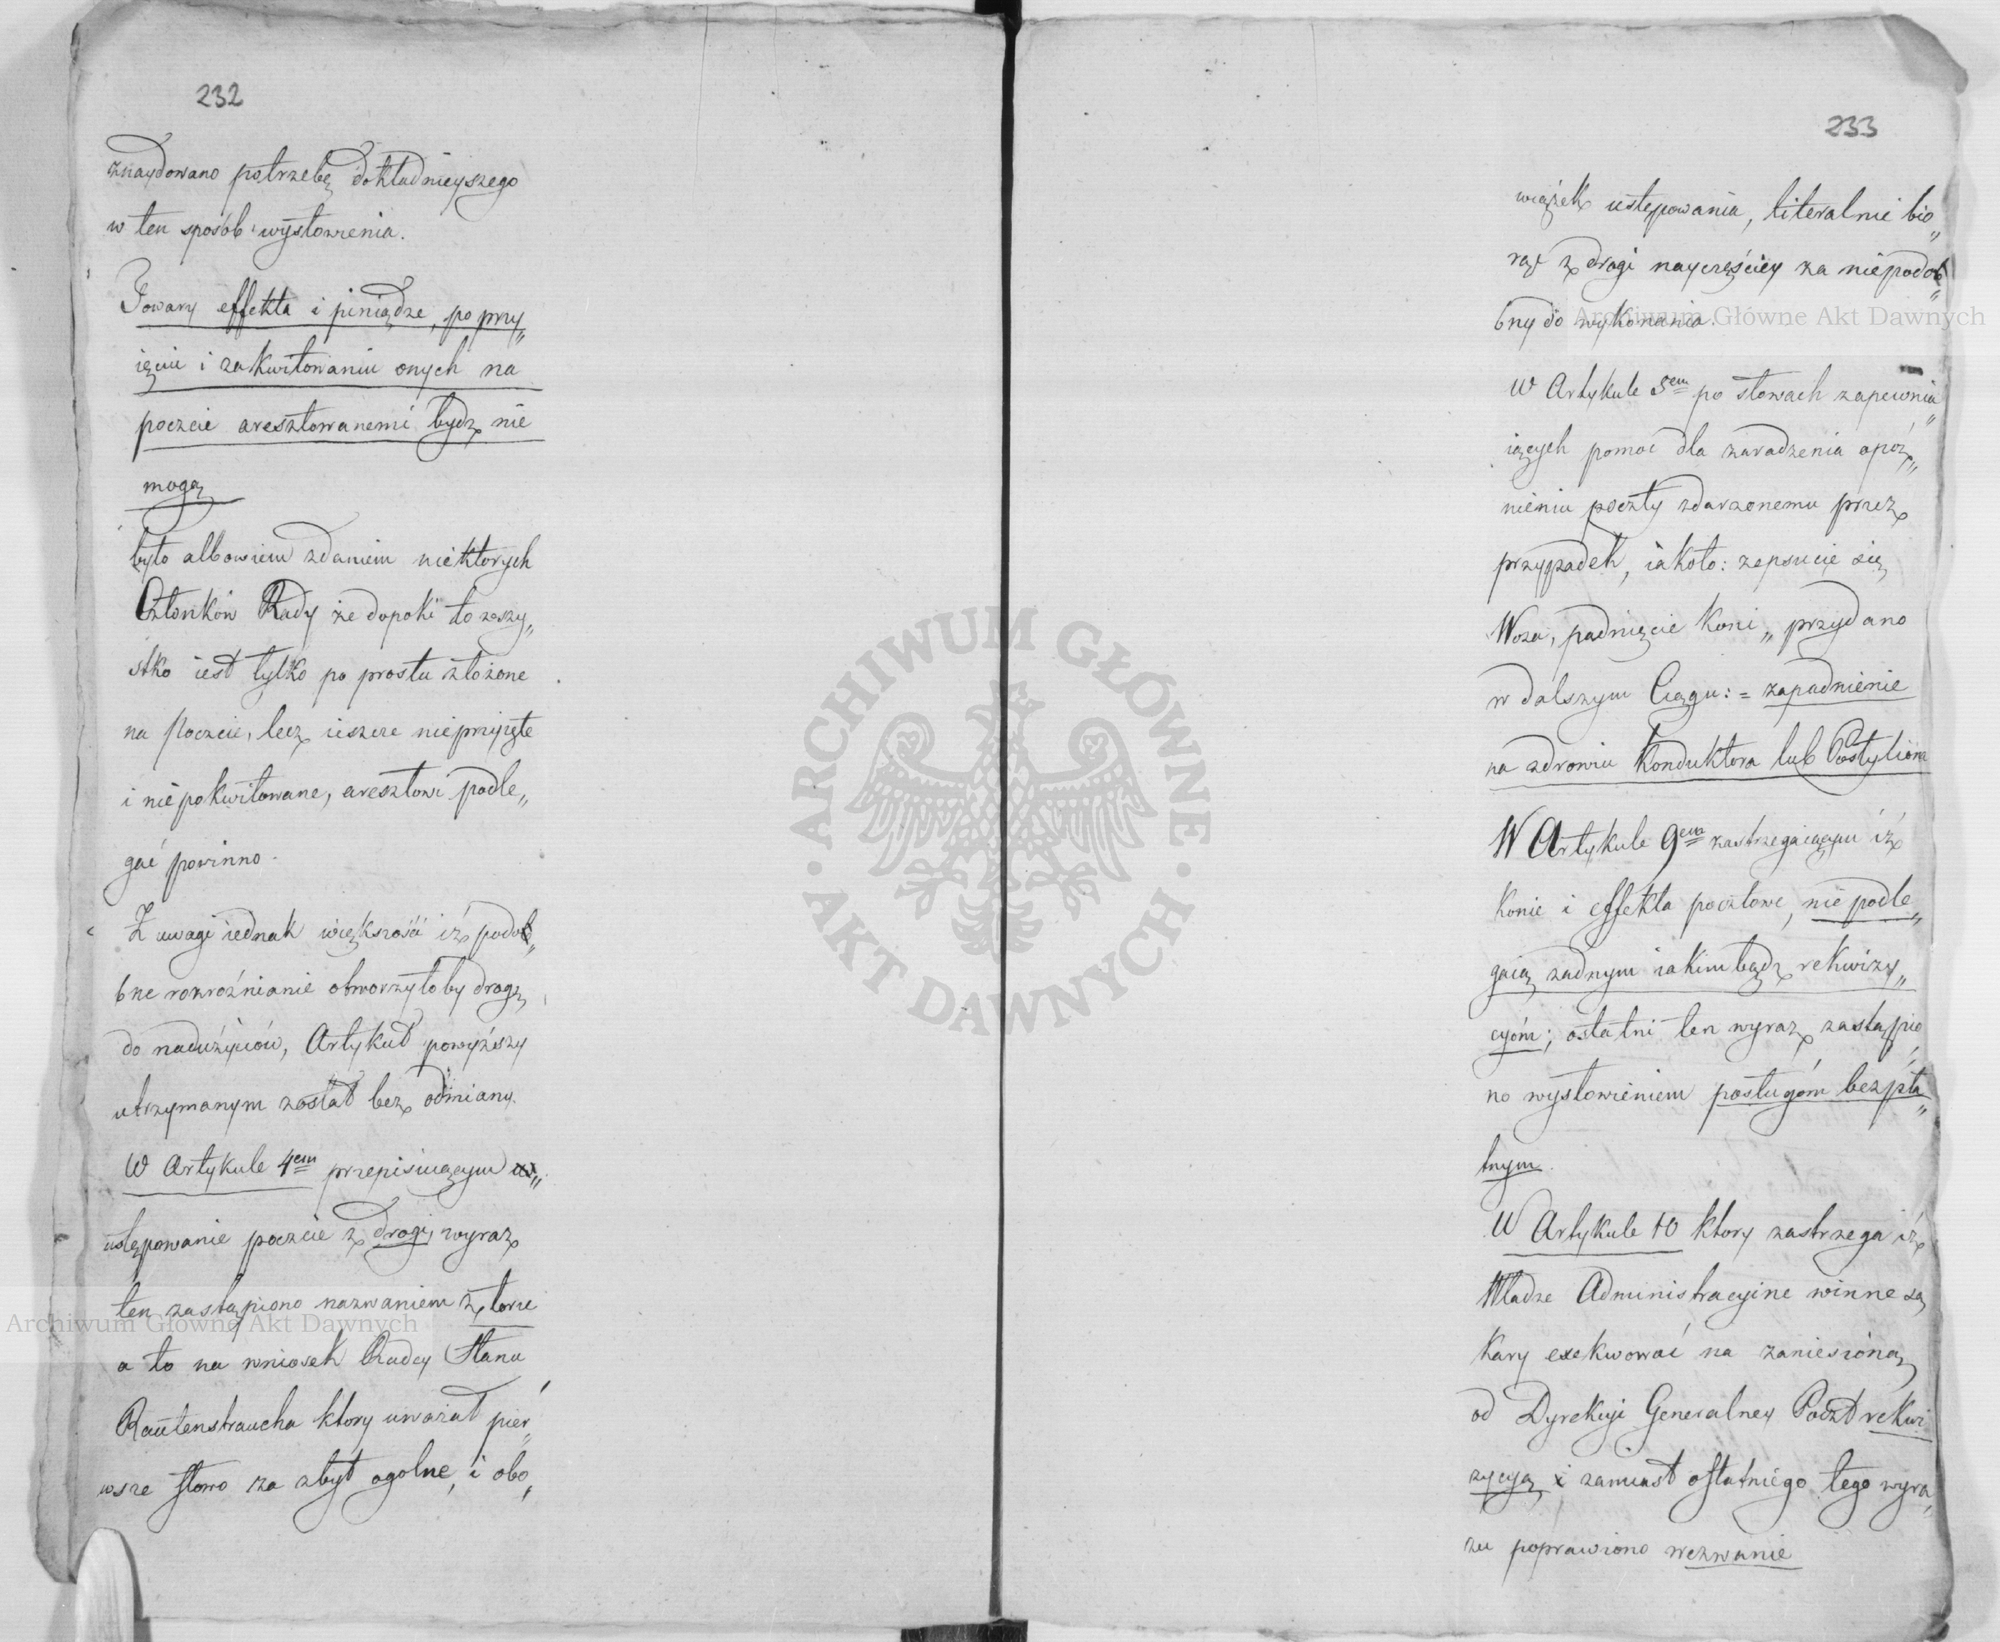 232
znaydowano potrzebę dokładnieyszego
w ten sposób wysłowienia.
Towary effekta i pieniądze, po przy„
ięciu i zakwitowaniu onych na
poczcie aresztowanemi bydz nie
mogą
było albowiem zdaniem niektorych
Członków Rady że dopoki to wszy„
stko iest tylko po prostu złożone
na Poczcie, lecz ieszcze nieprzyięte
i niepokwitowane, aresztowi podle„
gać powinno.
Z uwagi iednak większość iż podo„
bne rozróżnianie otworzyłoby drogę
do nadużyciów, Artykuł powyższy
utrzymanym został bez odmiany.
W Artykule 4em przepisuiącym
ustępowanie poczcie z drogi, wyraz
ten zastąpiono nazwaniem z torze
a to na wniosek Radcy Stanu
Rautenstraucha ktory uważał pier„
wsze słowo za zbyt ogolne, i obo„
233
wiązek ustępowania, literalnie bio„
rąc z drogi nayczęściey za niepodo„
bny do wykonania.
W Artykule 5em po słowach zapewnia„
iących pomoc dla zaradzenia opóź„
nieniu poczty zdarzonemu przez
przypadek, iakoto: zepsucie się
Woza, padnięcie koni„ przydano
w dalszym Ciągu: = zapadnienie
na zdrowiu Konduktora lub Postyliona
W Artykule 9em zastrzegaiącym iż
konie i effekta pocztowe, nie podle„
gaią żadnym iakimbądź rekwizy„
cyóm; ostatni ten wyraz zastąpio„
no wysłowieniem posługóm bezpła„
tnym.
W Artykule 10 ktory zastrzega iż
Władze Administracyine winne są
kary exekwować na zaniesioną
od Dyrekcyi Generalney Poczt rekwi
zycyą i zamiast ostatniego tego wyra„
zu poprawiono wezwanie
Archiwum Główne Akt Dawnych
Archiwum Główne Akt Dawnych
ARCHIWUM GŁÓWNE · AKT DAWNYCH ·